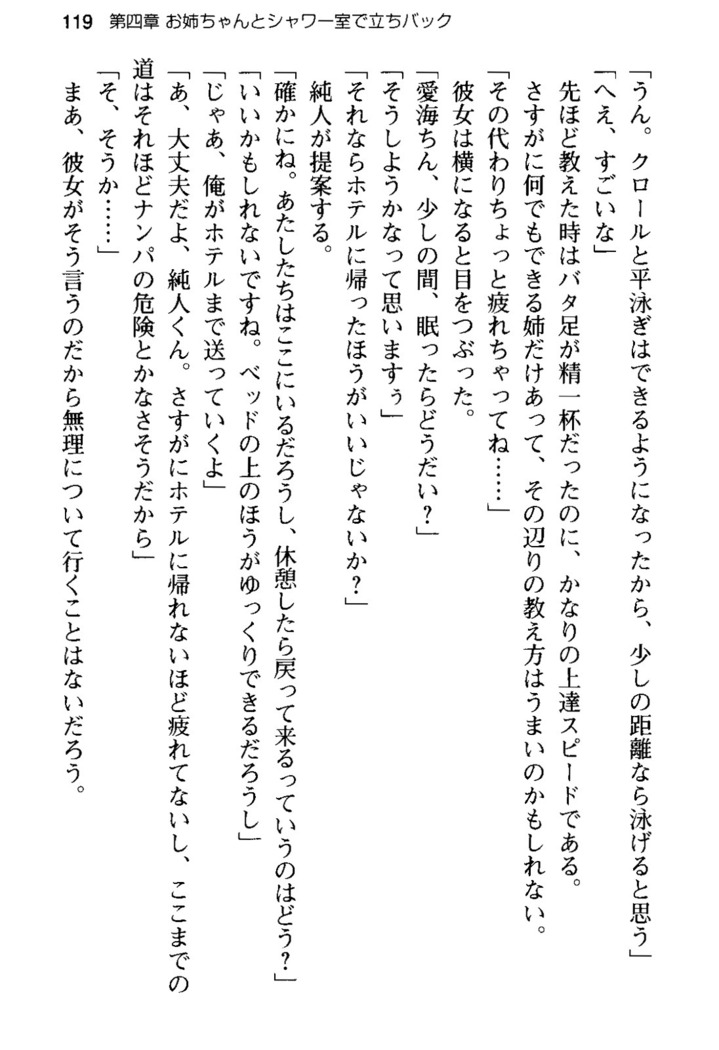 119 第四章 お姉ちゃんとシャワー室で立ちバック
「うん。クロールと平泳ぎはできるようになったから、少しの距離なら泳げると思う」
「へえ、すごいな」
先ほど教えた時はバタ足が精一杯だったのに、かなりの上達スピードである。
さすがに何でもできる姉だけあって、その辺りの教え方はうまいのかもしれない。
「その代わりちょっと疲れちゃってね……」
彼女は横になると目をつぶった。
「愛海ちん、少しの間、眠ったらどうだい？」
「そうしようかなって思いますぅ」
「それならホテルに帰ったほうがいいじゃないか？」
純人が提案する。
「確かにね。あたしたちはここにいるだろうし、休憩したら戻って来るっていうのはどう？」
「いいかもしれないですね。ベッドの上のほうがゆっくりできるだろうし」
「じゃあ、俺がホテルまで送っていくよ」
「あ、大丈夫だよ、純人くん。さすがにホテルに帰れないほど疲れてないし、ここまでの
道はそれほどナンパの危険とかなさそうだから」
「そ、そうか……」
まあ、彼女がそう言うのだから無理について行くことはないだろう。